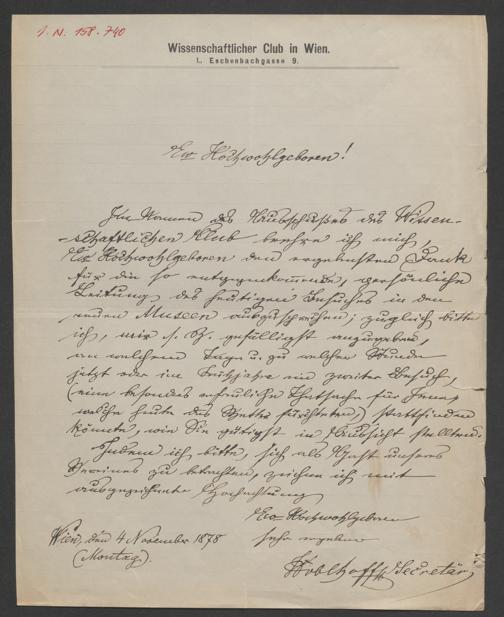 I. N. 158.740
Wissenschaftlicher Club in Wien.
I., Eschenbachgasse 9.
Ew Hochwohlgeboren!
Im Namen des Ausschußes des Wissen-
-schaftlichen Klub beehre ich mich,
Ew Hochwohlgeboren den ergebensten Dank
für die so entgegenkommende, persönliche
Leitung des heutigen Besuches in den
neuen Museen auszusprechen; zugleich bitte
ich, mir s. Z. gefälligst anzugeben,
an welchem Tage u. zu welcher Stunde
jetzt oder im Frühjahre ein zweiter Besuch,
(eine besonders erfreuliche Thatsache für Jene,
welche heute das Wetter fürchteten,) stattfinden
könnte, wie Sie gütigst in Aussicht stellten.
Indem ich bitte, sich als Gast unseres
Vereines zu betrachten, zeichne ich mit
ausgezeichneter Hochachtung
Ew Hochwohlgeboren
sehr ergebener
Wien, den 4 November 1878
(Montag).
Secretär